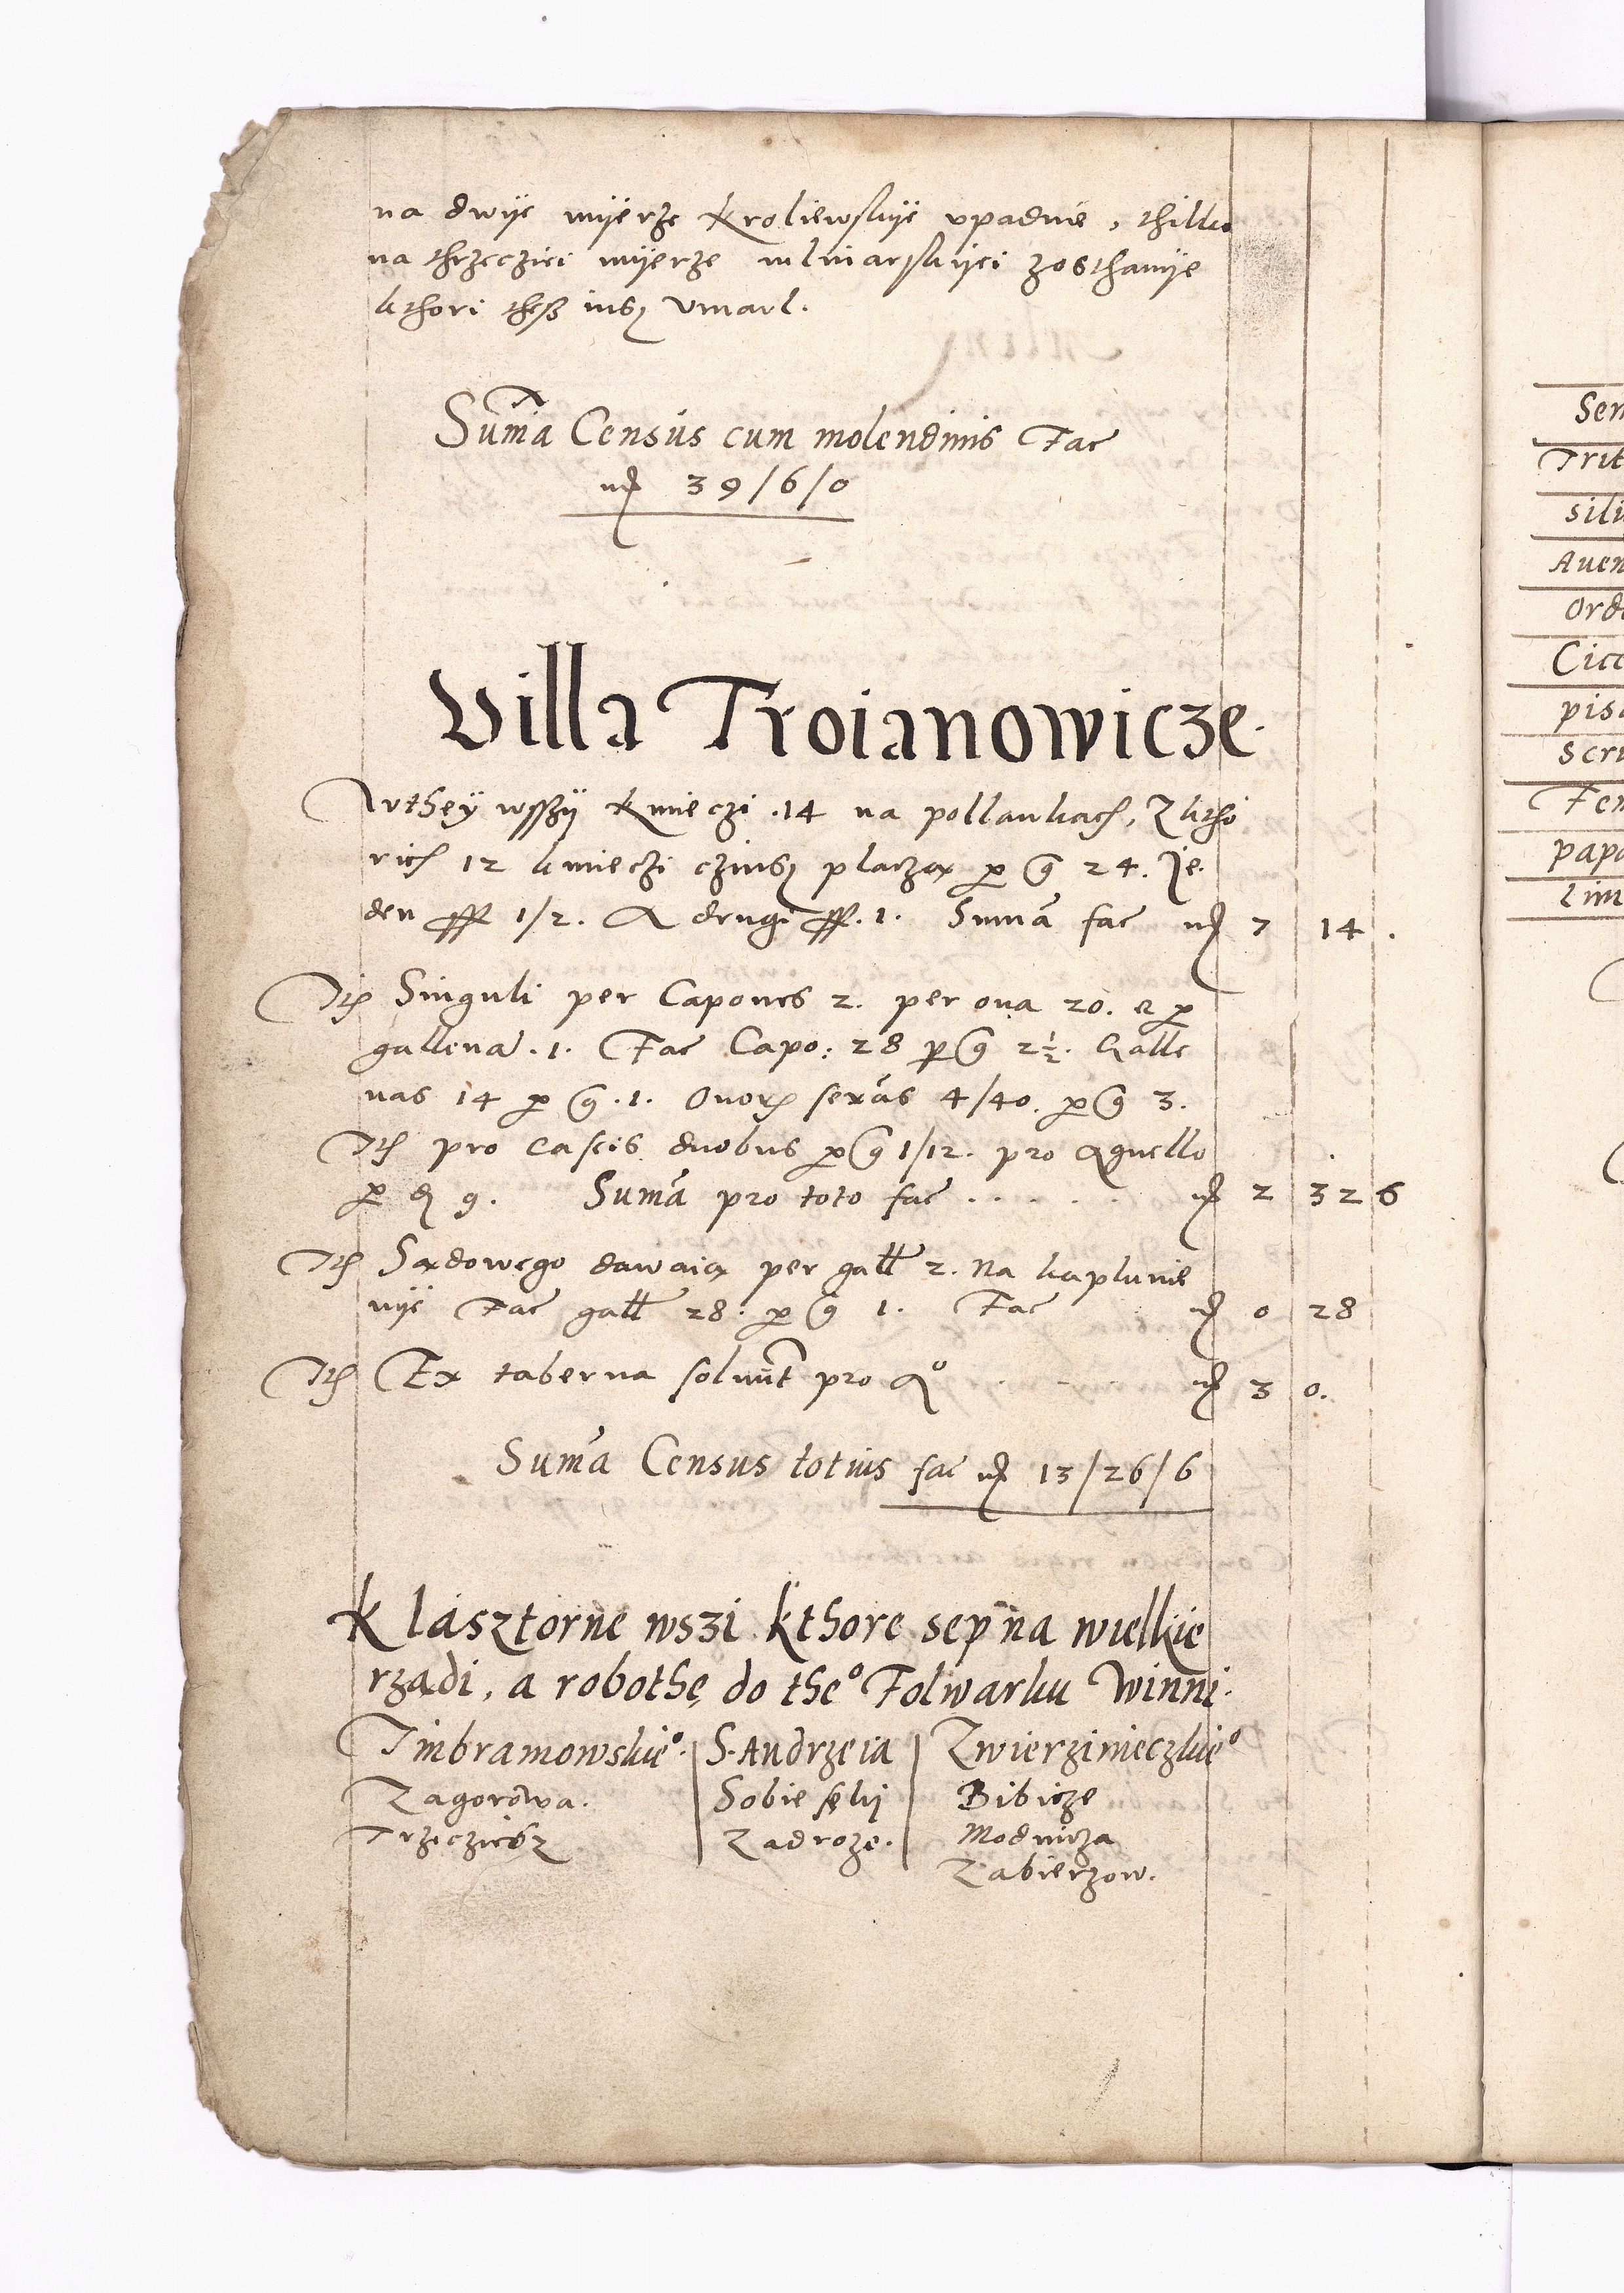 na dwije mijerze Kroliewskije vpadnie, thilko
na thrzecziei mijerze mlinarskijei zosthanije
kthori thesz iusz vmarl.
Suma Census cum molendinis Fac
mr 39/6/0
Villa Troianowicze.
Wthey wsszij Kmieczi .14 na pollankach, Z ktho
rich 12 kmieczi czinsz placza per g 24. Je.
den fl 1/2. A drugi fl. 1. Suma fac mr 7 14.
Itm Singuli per Capones 2. per oua 20. et per
gallena. 1. Fac Capo: 28 per g 2½. Galle
nas 14 per g .1. Ouorum sexas 4/40. per g 3.
Itm pro caseis duobus per g 1/12. pro Agnello
per d 9. Suma pro toto fac . . . . . mr 2 32 6
Itm Sadowego dawaia per gall 2. Na kaplunie
nije Fac gall 28: per g 1. Fac mr 0 28
Itm Ex taberna soluunt pro Ao . . . mr 3 0.
Suma Census totius fac mr 13/26/6
Klasztorne wszi kthore sep na wielkie
rzadi, a robothę do the° Folwarku Winni.
Imbramowskie°. | S. Andrzeia | Zwierzinieczkie°
Zagorowa. | Sobieseki | Bibicze
Trzeczicsz | Zadroze. | Modnicza
Zabierzow.
Ser
Trit
sili
Auen
Orde
Cice
pis
Scr
Fen
papa
lini